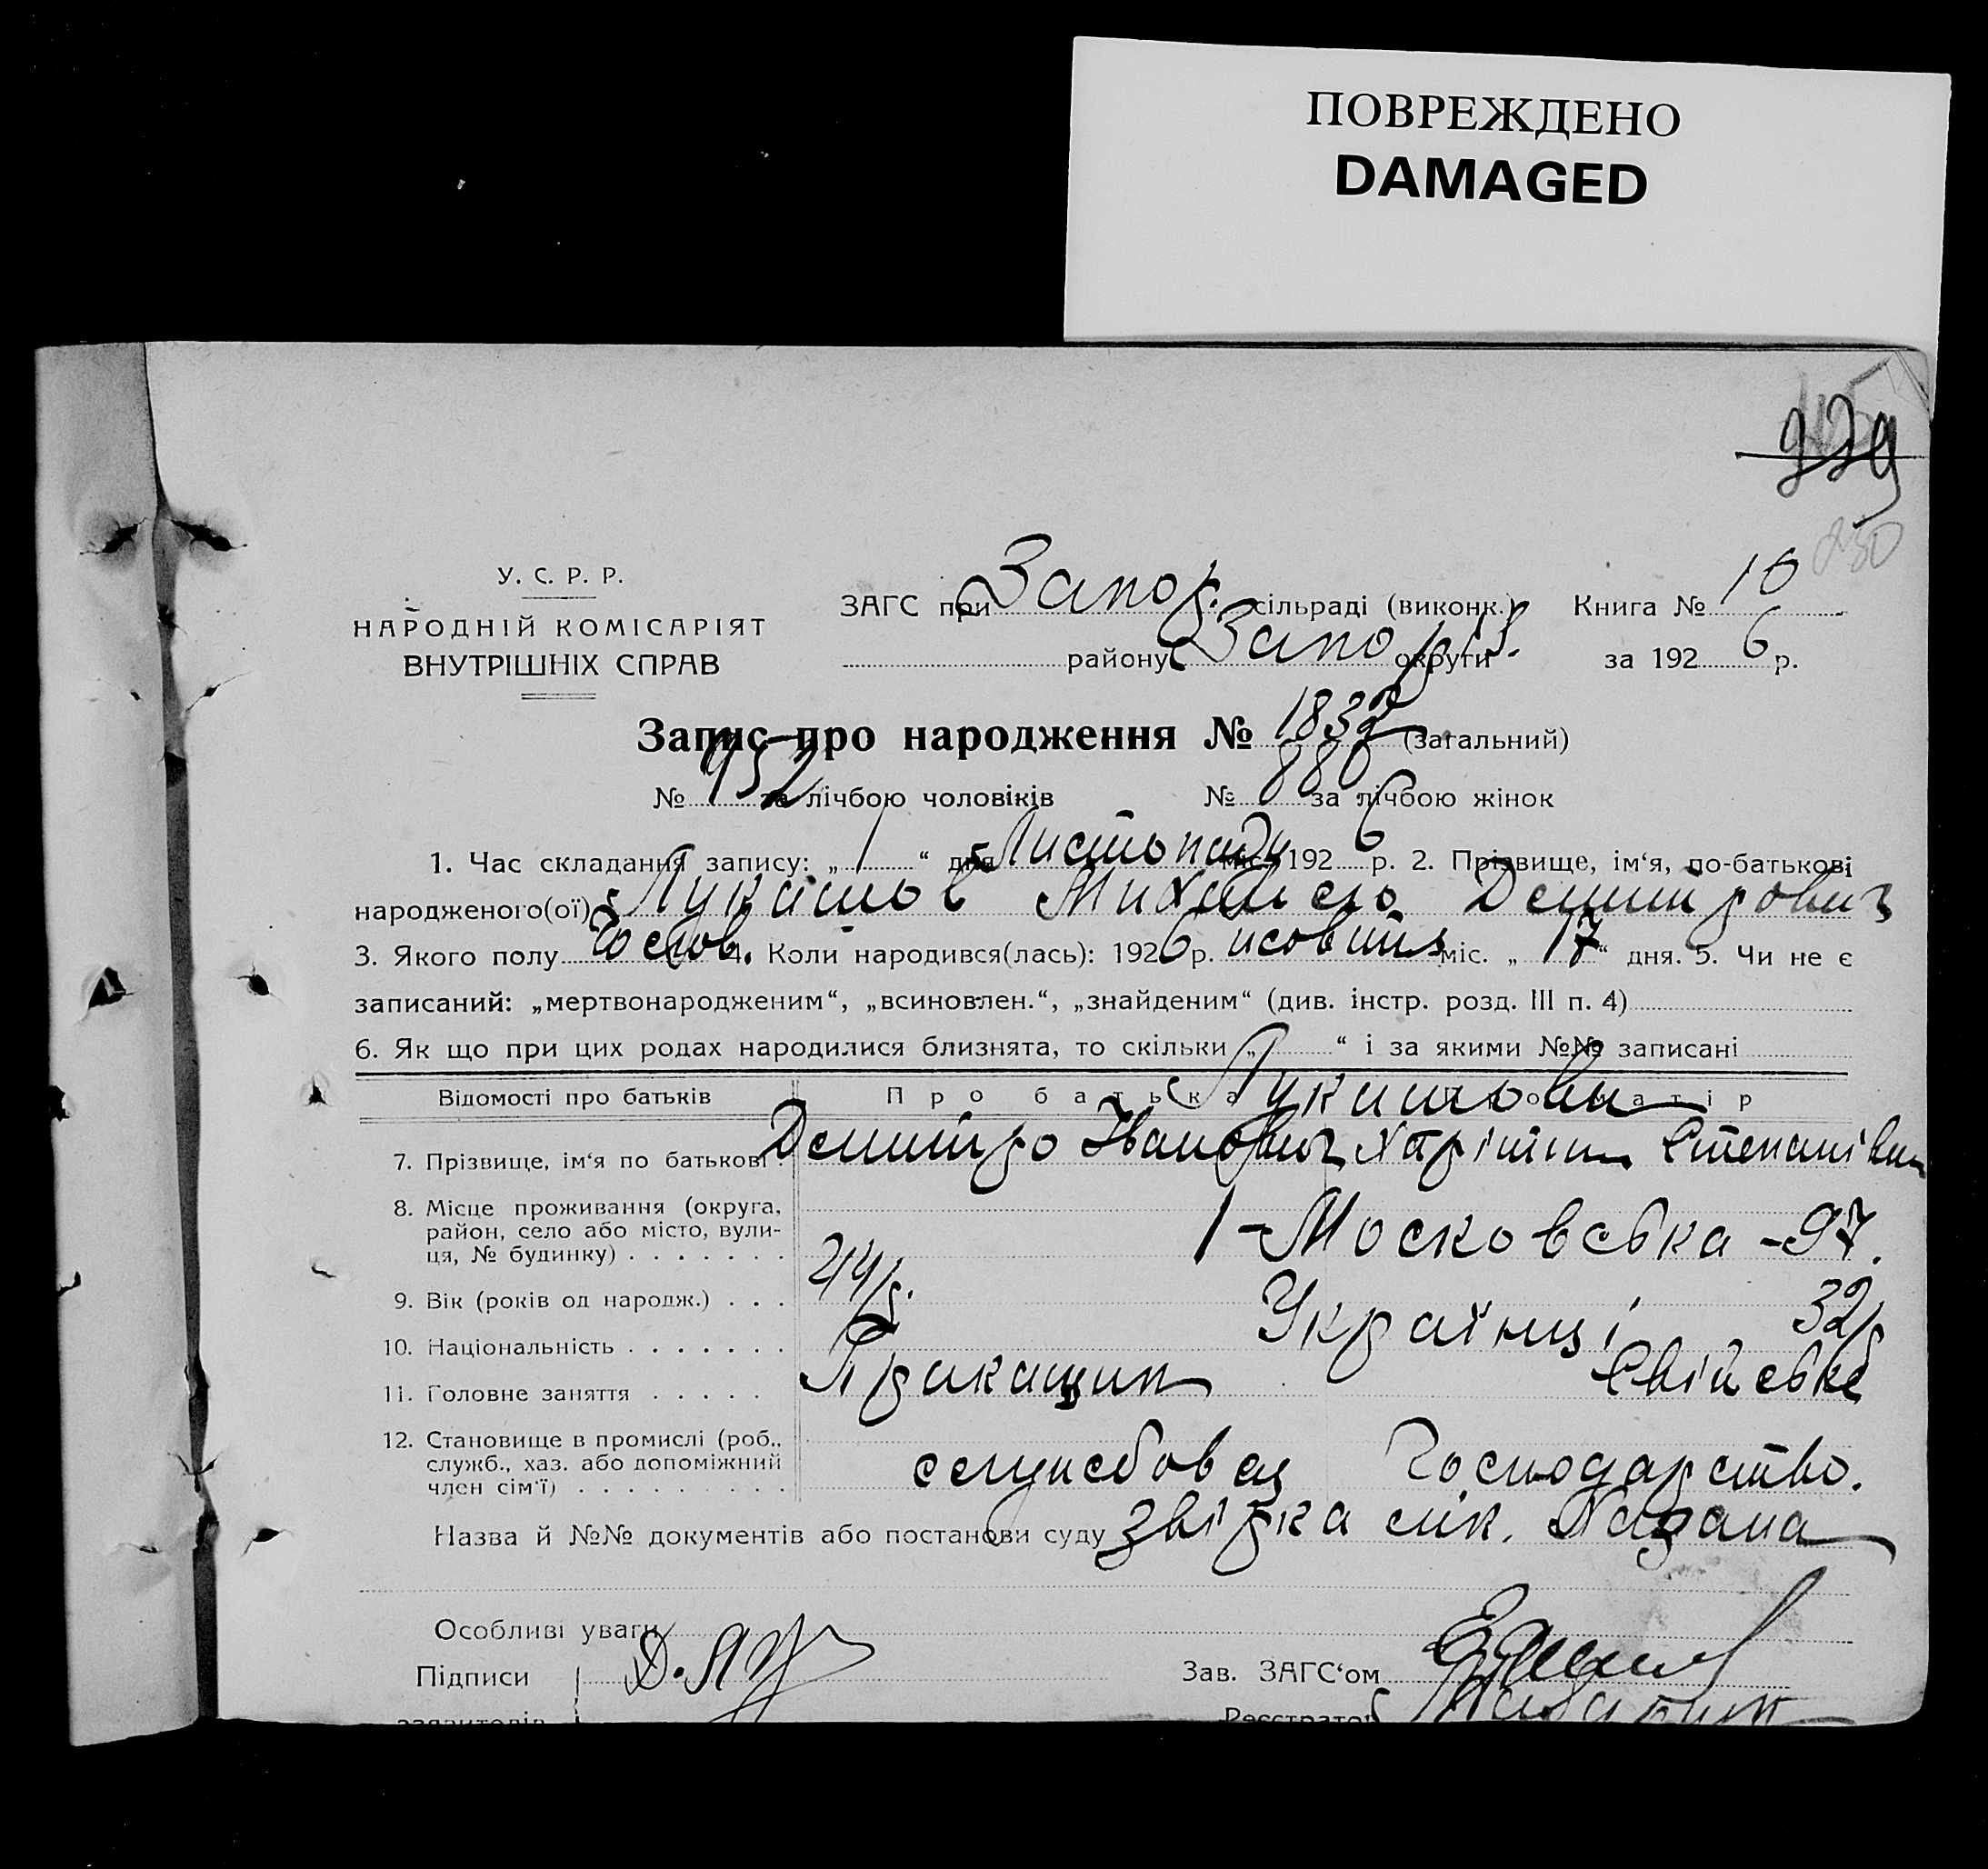 ПОВРЕЖДЕНО
DAMAGED
229
230
У. С. Р. Р.
НАРОДНІЙ КОМІСАРІЯТ
ВНУТРІШНІХ СПРАВ
ЗАГС при Запор. сільраді (виконк.) Книга № 10
району Запоріз. округи за 1926 р.
Запис про народження № 1832 (загальний)
№ 952 за лічбою чоловіків № 880 за лічбою жінок
1. Час складання запису: „ 1 “ дня Листопаду міс. 1926 р. 2. Прізвище, ім‘я, по-батькові
народженого(ої) Лукашов Михайло Демитрович
3. Якого полу чолов. 4. Коли народився(лась): 1926 р. жовтня міс. „ 17 “ дня. 5. Чи не є
записаний: „мертвонародженим“, „всиновлен.“, „знайденим“ (див. інстр. розд. III п. 4)
6. Як що при цих родах народилися близнята, то скільки „ “ і за якими №№ записані
Відомості про батьків Про батька Про матір
Лукашови
7. Прізвище, ім‘я по батькові Демитро Іванович Харітина Степанівна
8. Місце проживання (округа, район, село або місто, вулиця, № будинку) 1-Московська-97.
9. Вік (років од народж.) 44р. 32р
10. Національність Українці
11. Головне заняття Свійське
12. Становище в промислі (роб., служб., хаз. або допоміжний член сім‘ї) службовец Господарство.
Назва й №№ документів або постанови суду звірка лік.
Особливі уваги
Підписи Зав. ЗАГС‘ом
заявителів Реєстратор